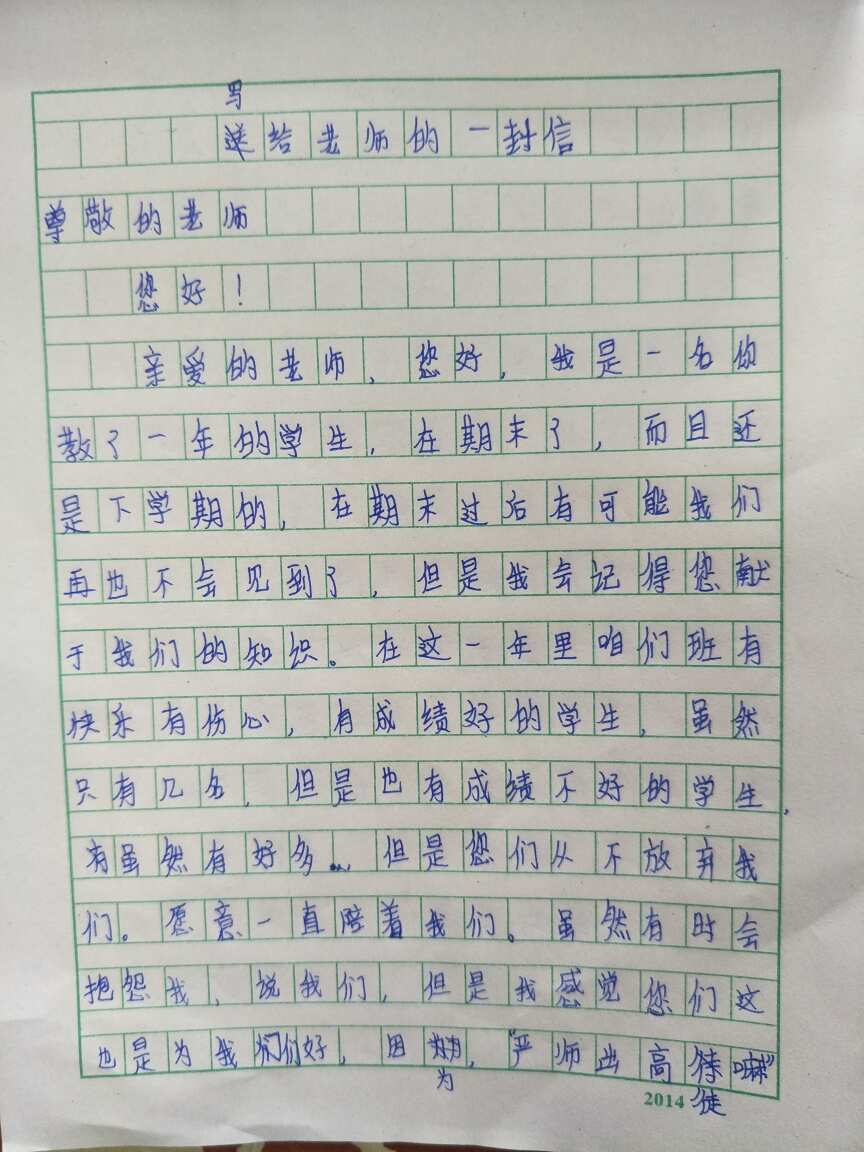 写
送给老师的一封信
尊敬的老师
您好！
亲爱的老师，您好，我是一名你
教了一年的学生，在期末了，而且还
是下学期的，在期末过后有可能我们
再也不会见到了，但是我会记得您献
于我们的知识。在这一年里咱们班有
快乐有伤心，有成绩好的学生，虽然
只有几名，但是也有成绩不好的学生，
有虽然有好多，但是您们从不放弃我
们。愿意一直陪着我们。虽然有时会
抱怨我，说我们，但是我感觉您们这
也是为我们们好，因，“严师出高徒嘛”
为
2014 徒